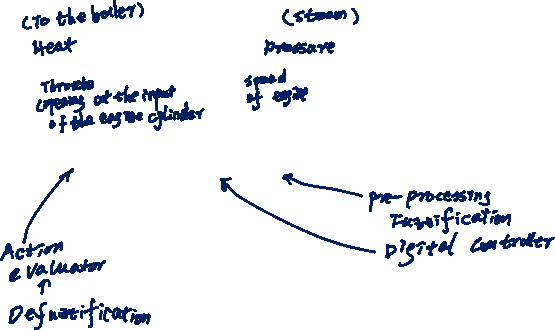 (To the boiler)
(steam)
Heat
pressure
Throttle
(opening at the input
of the engine cylinder
speed
of engine
pre-processing
Fuzzification
Digital Controller
Action
evaluator
Defuzzification